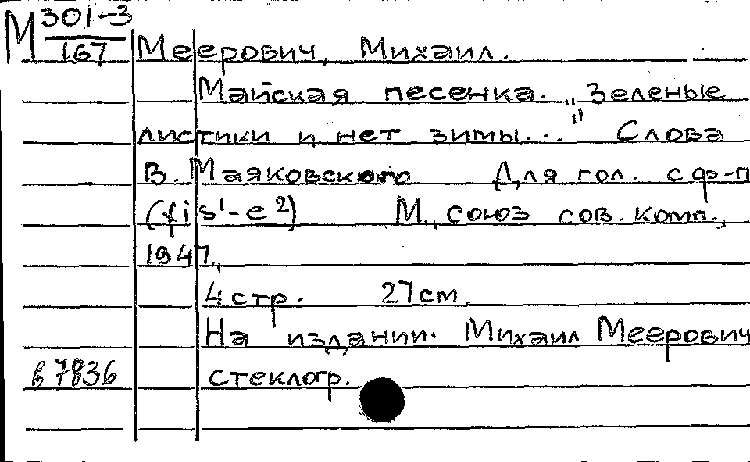 М 301-3
167 Меерович, Михаил.
Майская песенка. „Зеленые
листики и нет зимы..." Слова
В. Маяковского Для гол. с ф-п
(fis¹-e²) М., союз сов. комп.,
1947.,
4 стр. 27 см.
На издании: Михаил Меерович
в 7836 стеклогр.